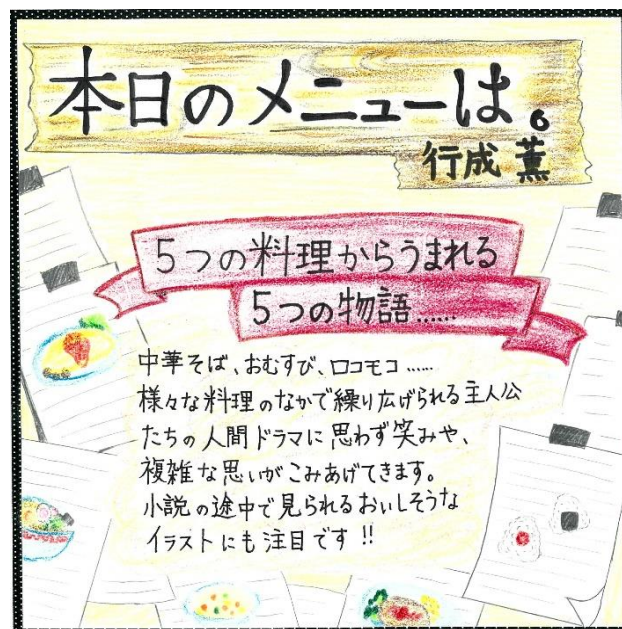 本日のメニューは。
行成 薫
5つの料理からうまれる
5つの物語……
中華そば、おむすび、ロコモコ……
様々な料理のなかで繰り広げられる主人公
たちの人間ドラマに思わず笑みや、
複雑な思いがこみあげてきます。
小説の途中で見られるおいしそうな
イラストにも注目です!!